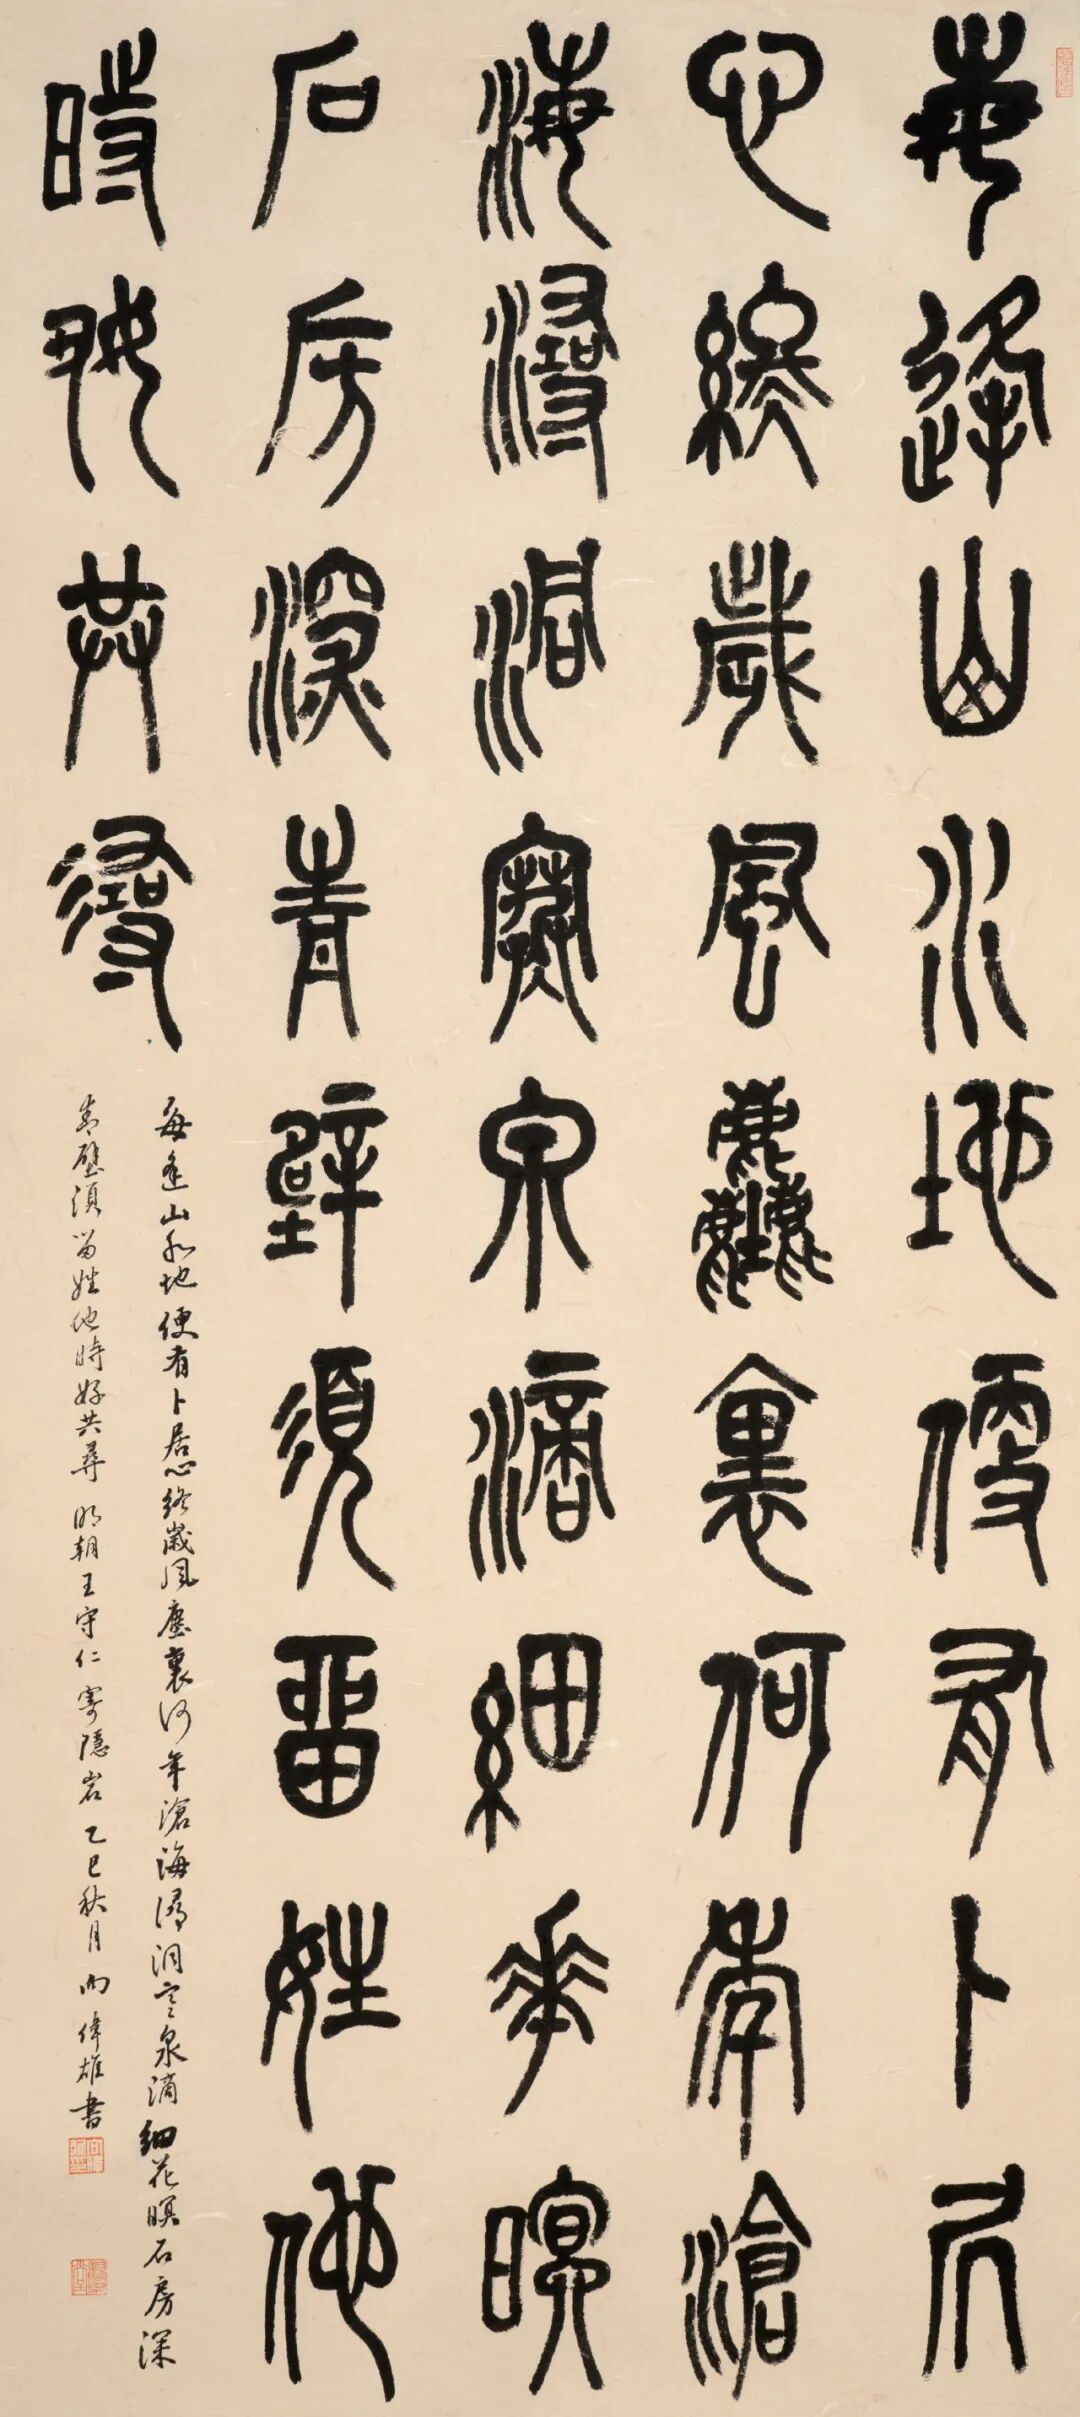 每逢山水地便有卜居
心終歲風塵裏何年滄
海潯洞寒泉滴細花暝
石房深青壁須留姓他
時好共尋
每逢山水地便有卜居心終歲風塵裏何年滄海潯洞寒泉滴細花暝石房深
青壁須留姓他時好共尋 明朝王守仁寄隱岩 乙巳秋月 向偉雄書